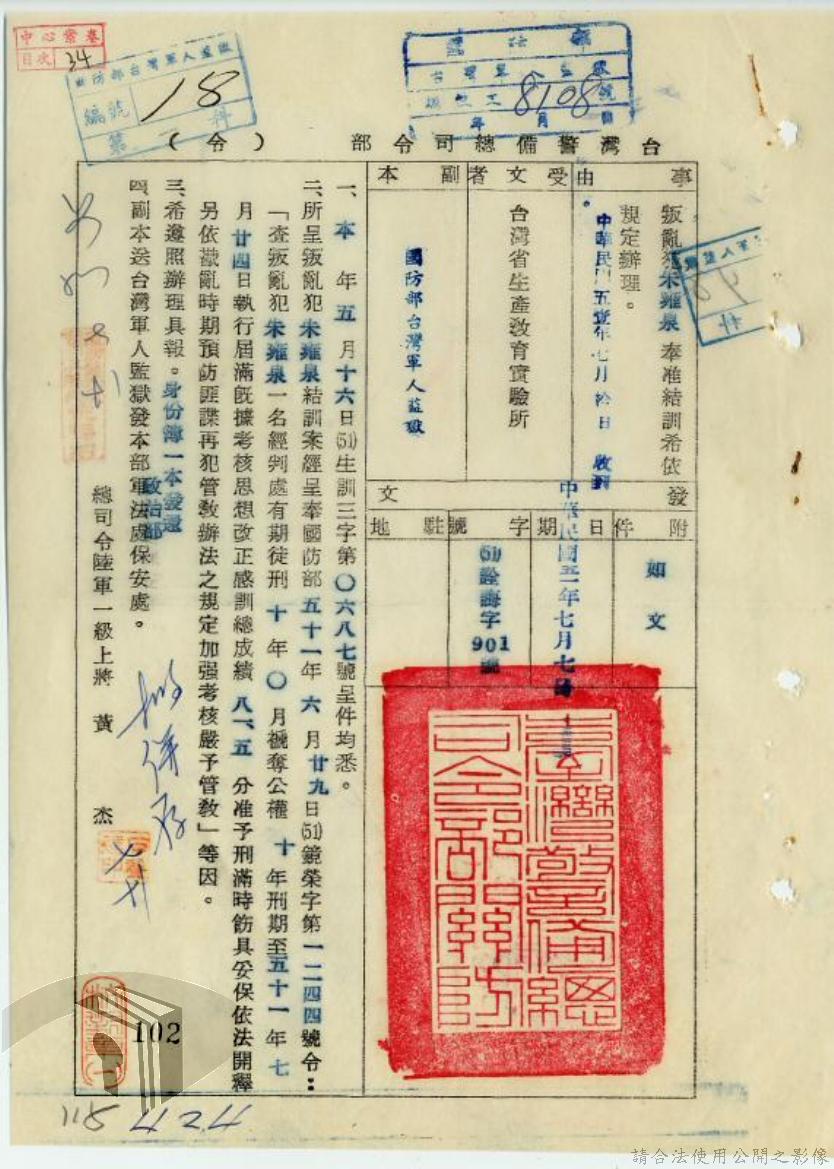 中心案卷
目次 34
國防部台灣軍人監獄
編號 18
第 科
8108
年 月
台灣警備總司令部(令)
事由
叛亂犯朱雍泉奉准結訓希依
規定辦理。
中華民國五壹年七月拾日 收到
受文者
台灣省生產教育實驗所
副本
國防部台灣軍人監獄
發文
附件
如文
日期
中華民國五一年七月七日
字號
(51)詮海字
901號
駐地
臺灣警備總
司令部關防
一、本年五月十六日(51)生訓三字第〇六八七號呈件均悉。
二、所呈叛亂犯朱雍泉結訓案經呈奉國防部五十一年六月廿九日(51)鏡榮字第一二四四號令:
「查叛亂犯朱雍泉一名經判處有期徒刑十年〇月褫奪公權十年刑期至五十一年七
月廿四日執行屆滿既據考核思想改正感訓總成績八一、五分准予刑滿時飭具妥保依法開釋
另依戡亂時期預防匪諜再犯管教辦法之規定加强考核嚴予管教」等因。
三、希遵照辦理具報。身份簿一本發還
四、副本送台灣軍人監獄發本部軍法處保安處。
政治部
總司令陸軍一級上將 黃 杰
102
118
請合法使用公開之影像